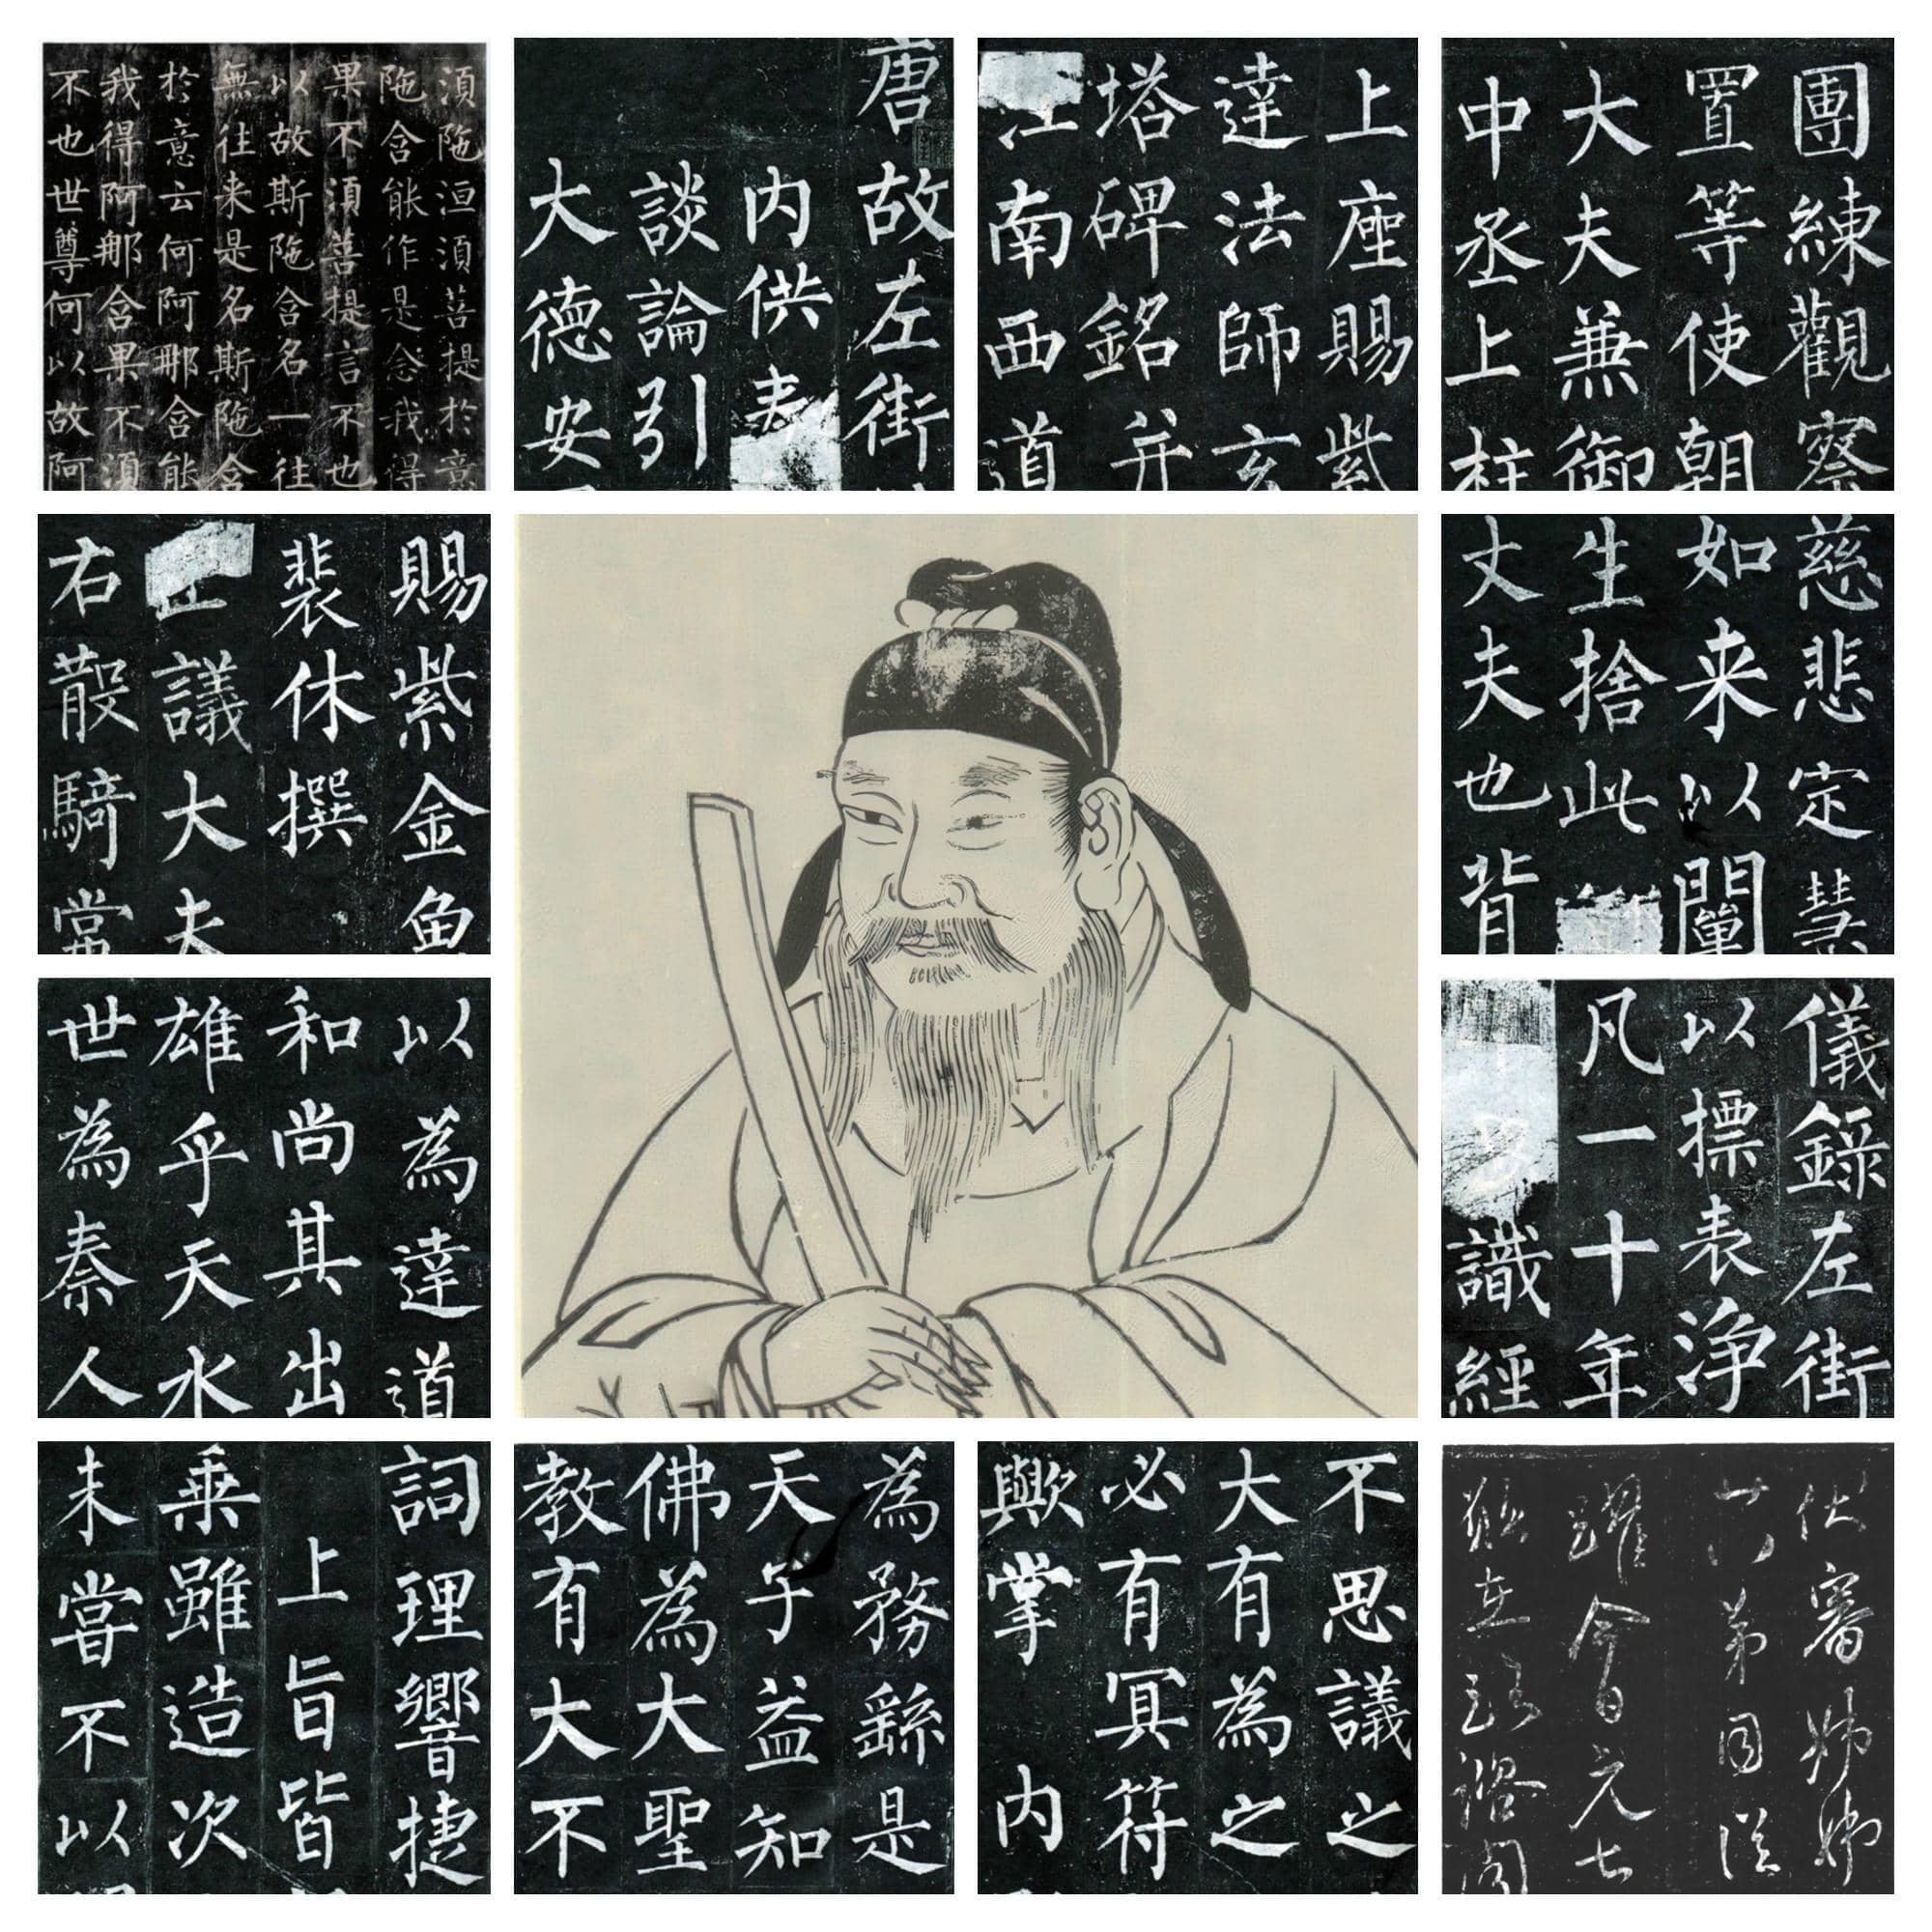 須陁洹須菩提於意
陁含能作是念我得
果不須菩提言不也
以故斯陁含名一往
無往来是名斯陁含
於意云何阿那含能
我得阿那含果不須
不也世尊何以故阿
唐故左街
内供奉
談論引
大德安
上座賜紫
達法師玄
塔碑銘并
江南西道
團練觀察
置等使朝
大夫兼御
中丞上柱
賜紫金魚
裴休撰
正議大夫
右散騎常
慈悲定慧
如来以闡
生捨此
丈夫也背
以為達道
和尚其出
雄乎天水
世為秦人
儀錄左街
以摽表浄
凡一十年
識經
詞理響捷
上旨皆
乘雖造次
未嘗不以
為務繇是
天子益知
佛為大聖
教有大不
不思議之
大有為之
必有冥符
歟掌内
伏審姊姊
弟同從
躍今日元七
在路諮